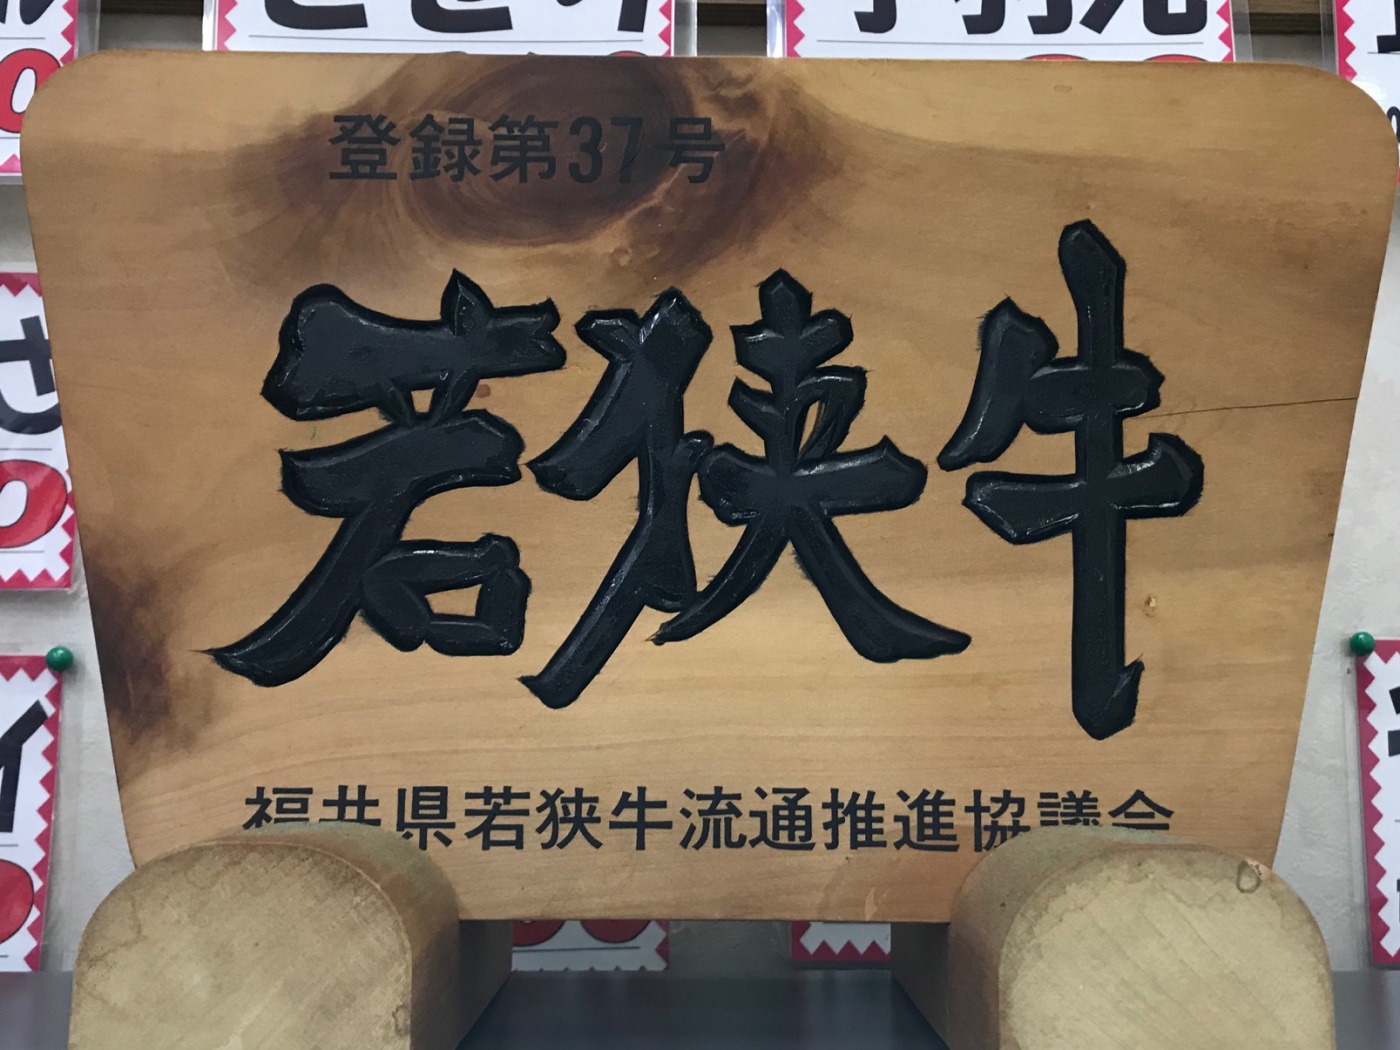 登録第37号
若狭牛
福井県若狭牛流通推進協議会